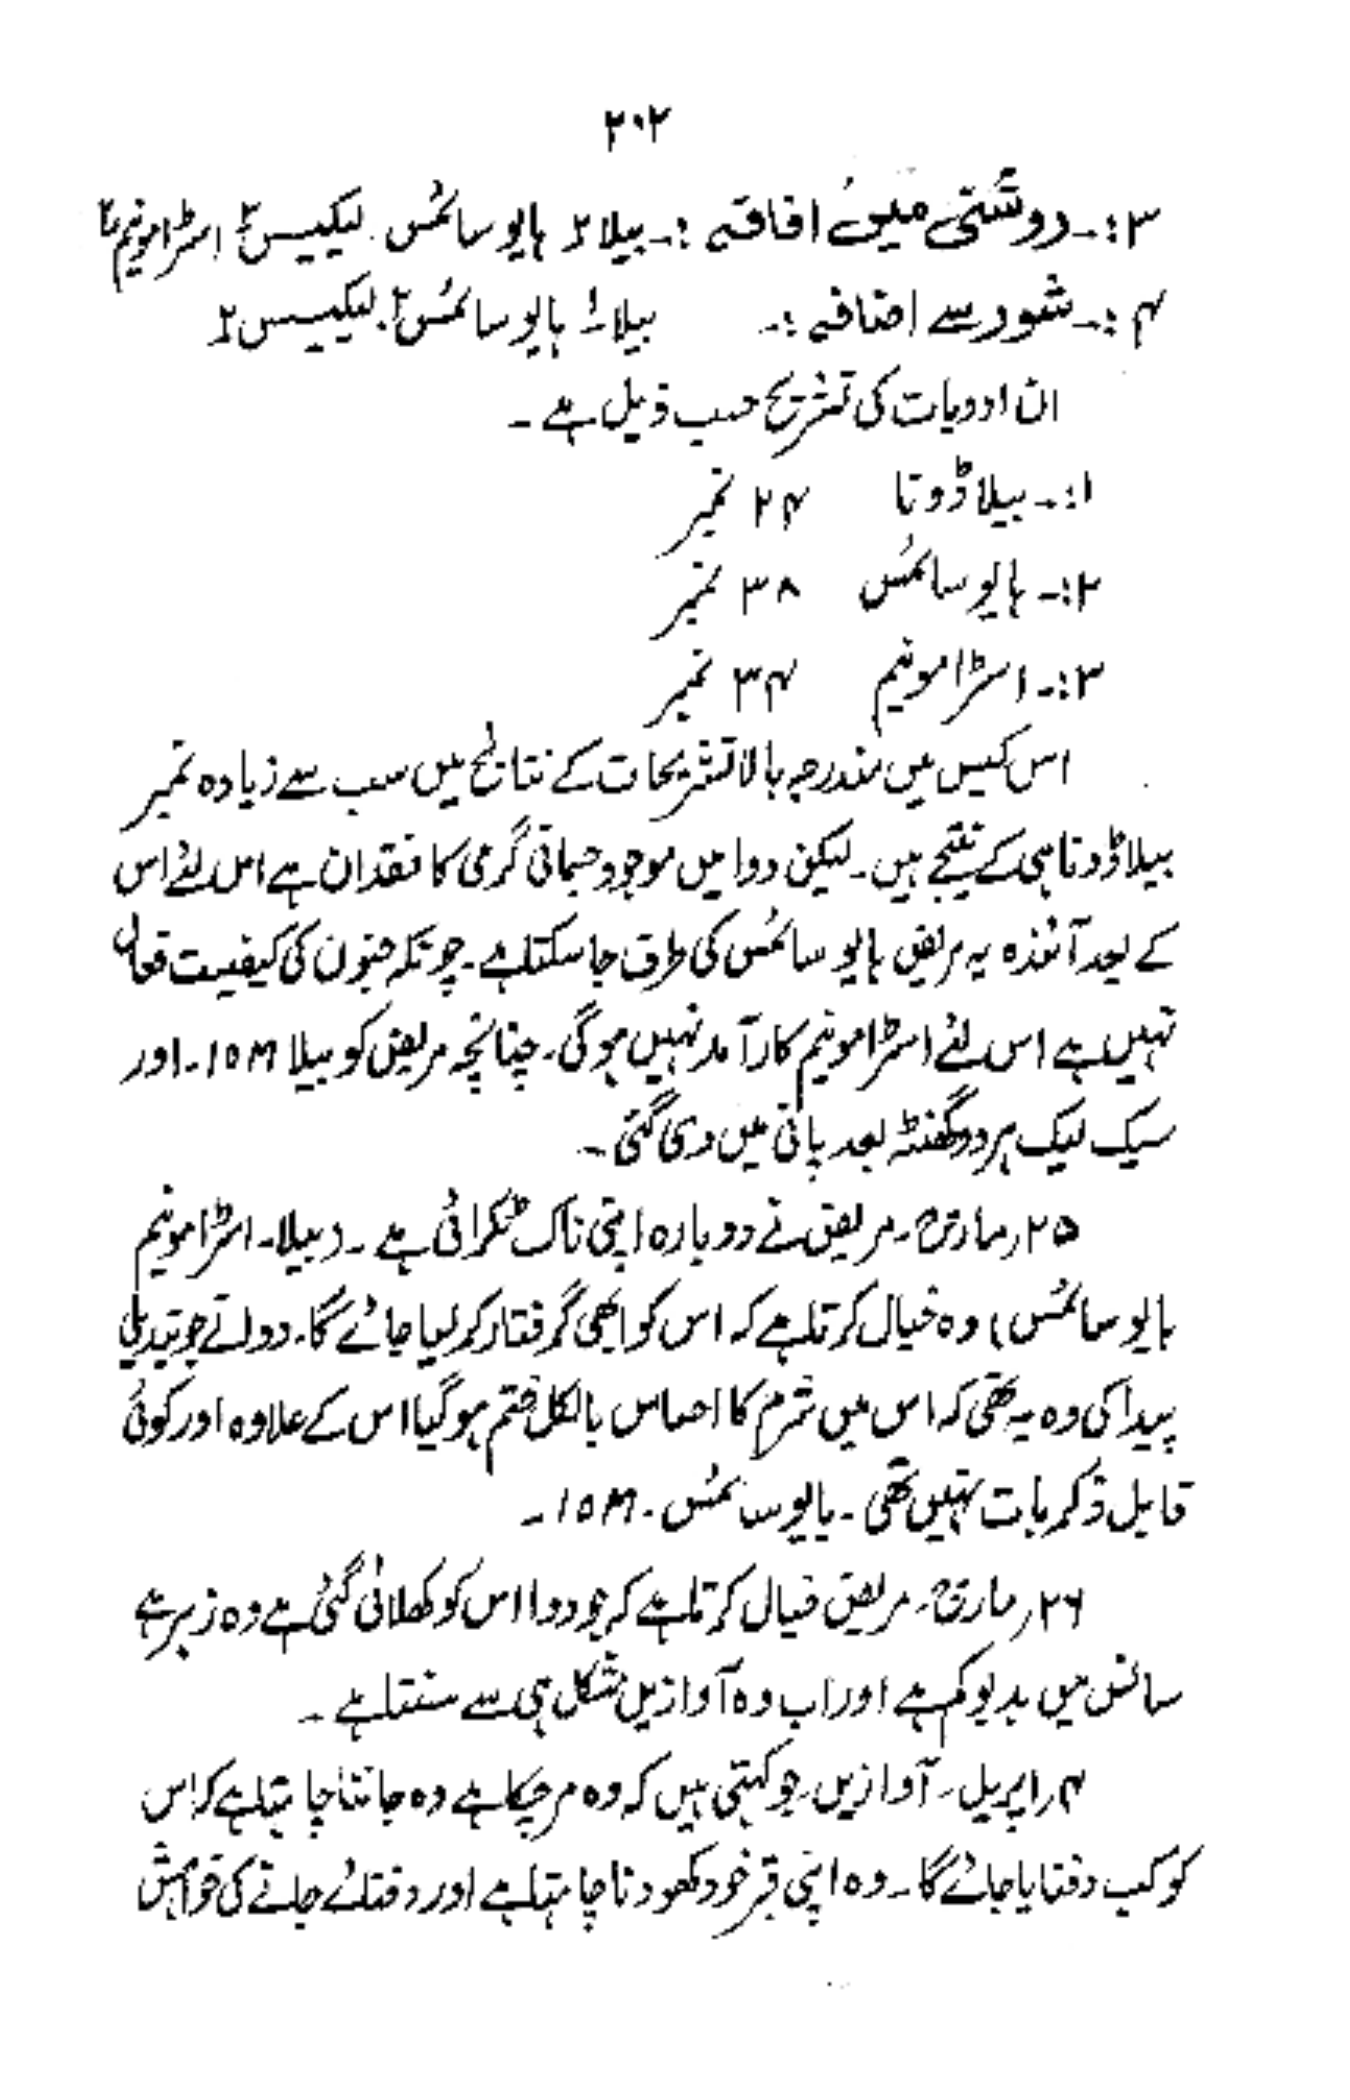 ۲۰۲
۳:۔ روشنی میں افاقہ :۔ بیلا ۲ ہایوسائمس لیکیسس ۲ اسٹرامونیم ۲
۴:۔ شور سے اضافہ :۔ بیلا ۱ ہایوسائمس ۲ لیکیسس ۲
ان ادویات کی تشریح حسب ذیل ہے ۔
۱:۔ بیلاڈونا ۲۴ نمبر
۲:۔ ہایوسائمس ۳۸ نمبر
۳:۔ اسٹرامونیم ۳۴ نمبر
اس کیس میں مندرجہ بالا تشریحات کے نتائج میں سب سے زیادہ نمبر
بیلاڈونا ہی کے نتیجے ہیں ۔ لیکن دوا میں موجود جسمانی گرمی کا فقدان ہے اس لئے اس
کے بعد آئندہ یہ مریض ہایوسائمس کی طرف جا سکتا ہے ۔ چونکہ جنون کی کیفیت فعال
نہیں ہے اس لئے اسٹرامونیم کارآمد نہیں ہوگی ۔ چنانچہ مریض کو بیلا 15M ۔ اور
سیک لیک ہر دو گھنٹہ بعد پانی میں دی گئی ۔
۲۵ر مارچ ۔ مریض نے دوبارہ اپنی ناک ٹکرائی ہے ۔ (بیلا ۔ اسٹرامونیم
ہایوسائمس) وہ خیال کرتا ہے کہ اس کو ابھی گرفتار کر لیا جائے گا ۔ دوا نے جو تبدیلی
پیدا کی وہ یہ تھی کہ اس میں شرم کا احساس بالکل ختم ہو گیا اس کے علاوہ اور کوئی
قابل ذکر بات نہیں تھی ۔ ہایوسائمس ۔ 15M ۔
۲۶ر مارچ ۔ مریض خیال کرتا ہے کہ جو دوا اس کو کھلائی گئی ہے وہ زہر ہے
سانس میں بدبو کم ہے اور اب وہ آوازیں مشکل ہی سے سنتا ہے ۔
۴ر اپریل ۔ آوازیں جو کہتی ہیں کہ وہ مرچکا ہے وہ جاننا چاہتا ہے کہ اس
کو کب دفنایا جائے گا ۔ وہ اپنی قبر خود کھودنا چاہتا ہے اور دفنائے جانے کی خواہش